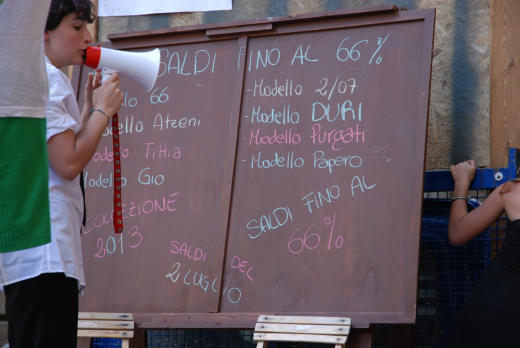 SALDI FINO AL 66%
66
Modello Atzeni
Modello Tihia
Modello Gio
COLLEZIONE
2013
SALDI DEL
2 LUGLIO
- Modello 2/07
- Modello DURI
- Modello Purgati
- Modello Papero
SALDI FINO AL
66%